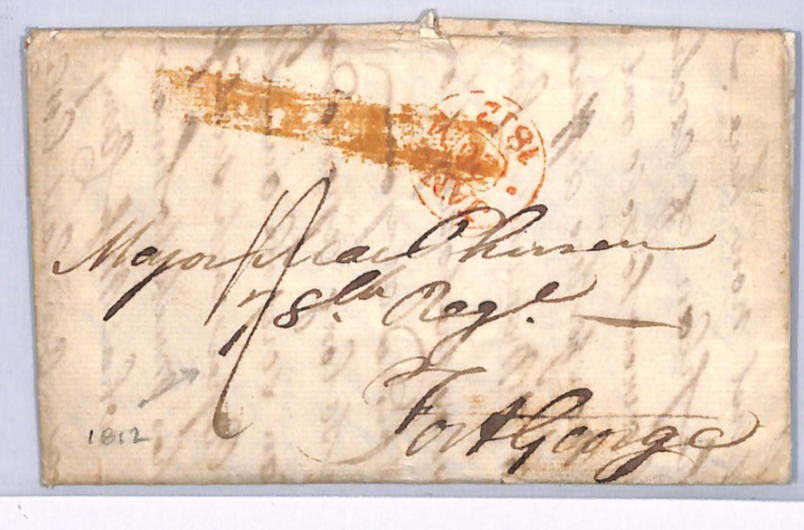 1812
Major MacPherson
78th Regt
Fort George
1812